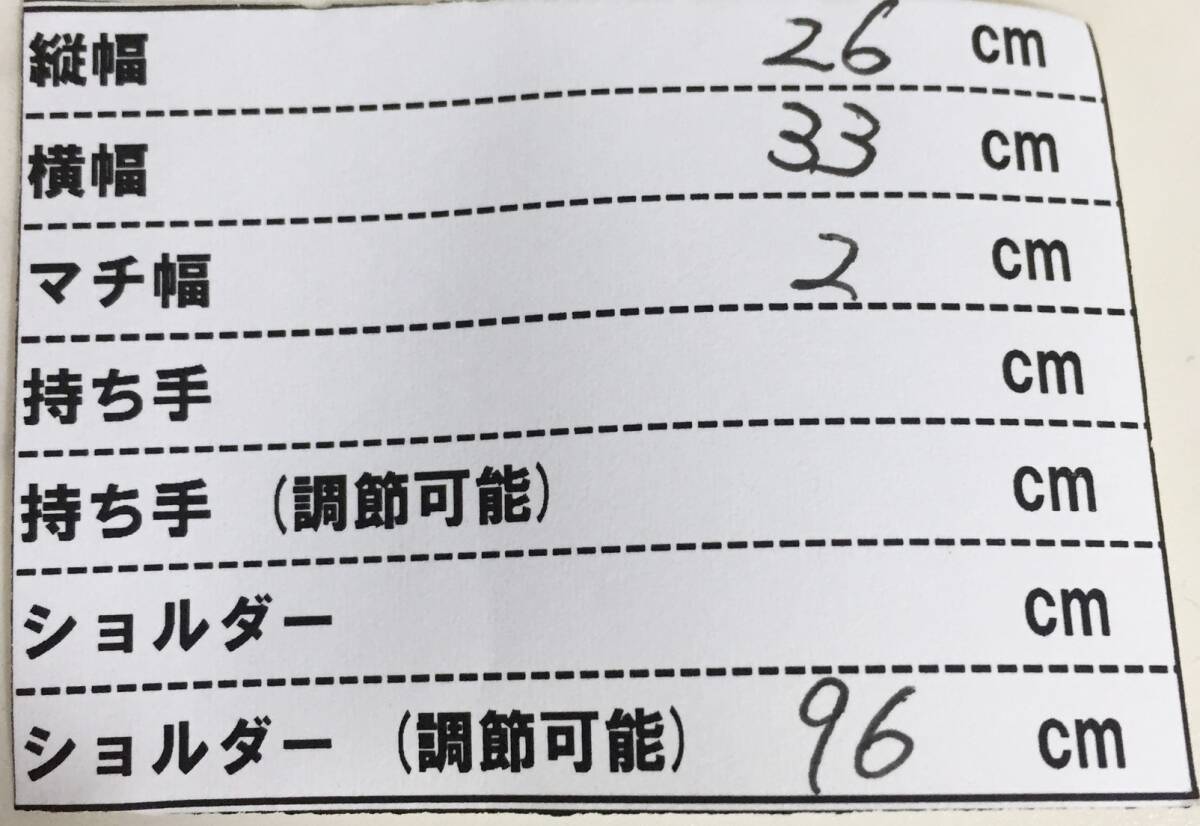 縦幅 26 cm
横幅 33 cm
マチ幅 2 cm
持ち手 cm
持ち手 (調節可能) cm
ショルダー cm
ショルダー (調節可能) 96 cm